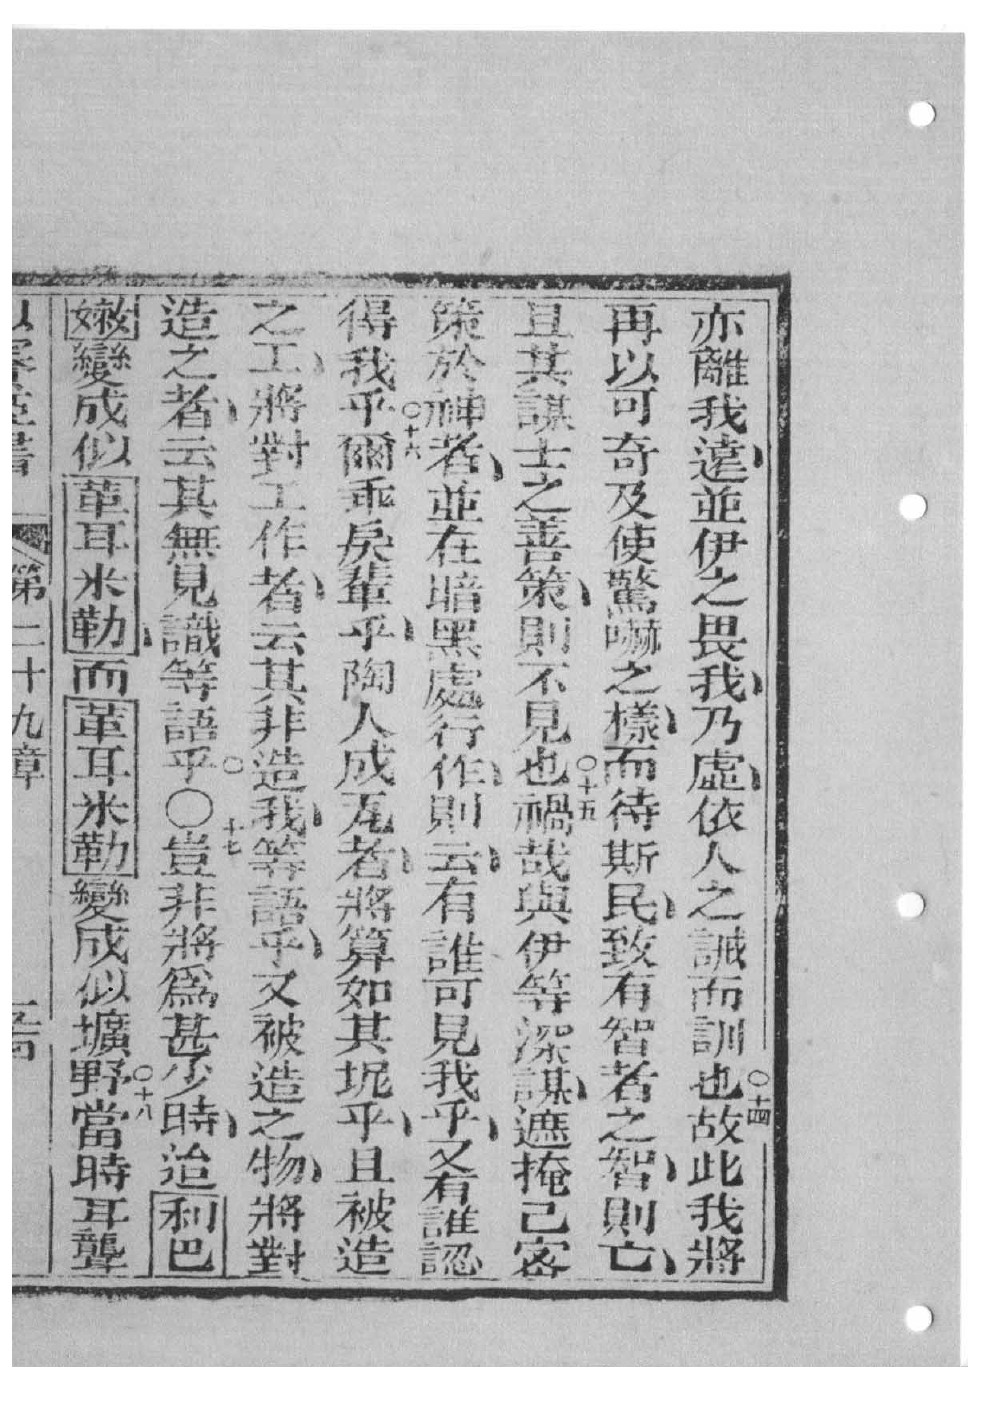 亦離我遠並伊之畏我乃虛依人之誡而訓也○十四故此我將
再以可奇及使驚嚇之樣而待斯民致有智者之智則亡
且其謀士之善策則不見也○十五禍哉與伊等深謀遮掩己密
策於神者並在暗黑處行作則云有誰可見我乎又有誰認
得我乎○十六爾乖戾輩乎陶人成瓦者將算如其坭乎且被造
之工將對工作者云其非造我等語乎又被造之物將對
造之者云其無見識等語乎○○十七豈非將為甚少時迨利巴
嫩變成似革耳米勒而革耳米勒變成似壙野○十八當時耳聾
第二十九章